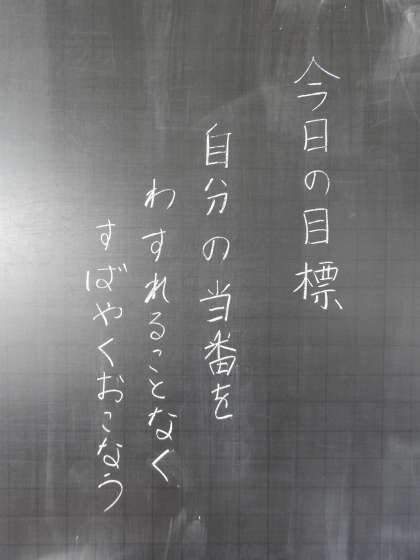 今日の目標
自分の当番を
わすれることなく
すばやくおこなう